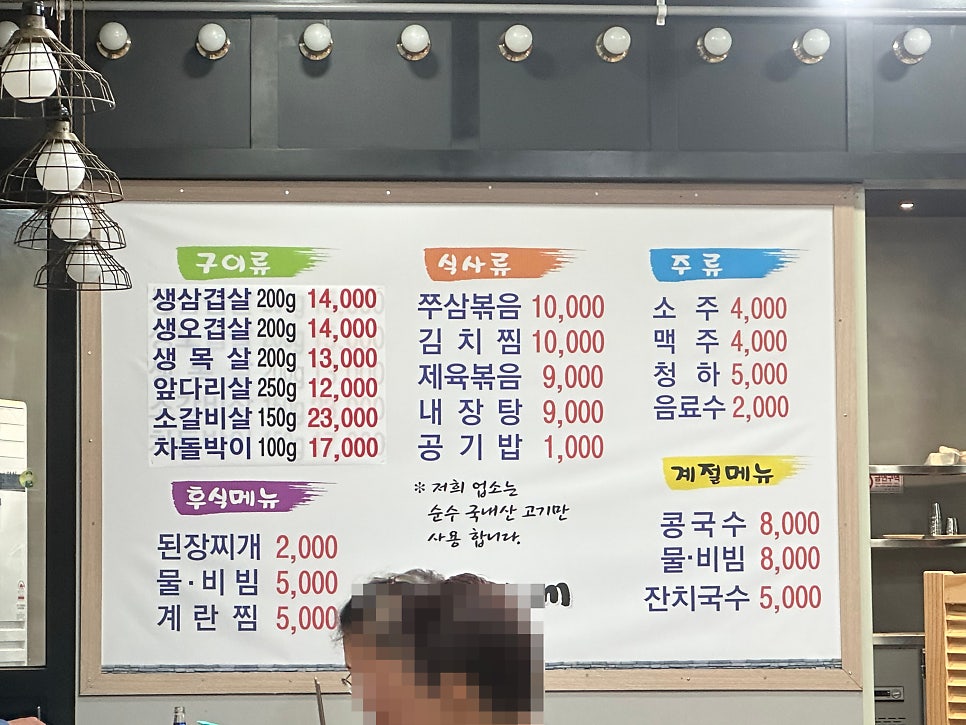 구이류
생삼겹살 200g 14,000
생오겹살 200g 14,000
생 목 살 200g 13,000
앞다리살 250g 12,000
소갈비살 150g 23,000
차돌박이 100g 17,000
후식메뉴
된장찌개 2,000
물·비빔 5,000
계 란 찜 5,000
식사류
쭈삼볶음 10,000
김 치 찜 10,000
제육볶음 9,000
내 장 탕 9,000
공 기 밥 1,000
※ 저희 업소는
순수 국내산 고기만
사용 합니다.
주류
소 주 4,000
맥 주 4,000
청 하 5,000
음료수 2,000
계절메뉴
콩국수 8,000
물·비빔 8,000
잔치국수 5,000